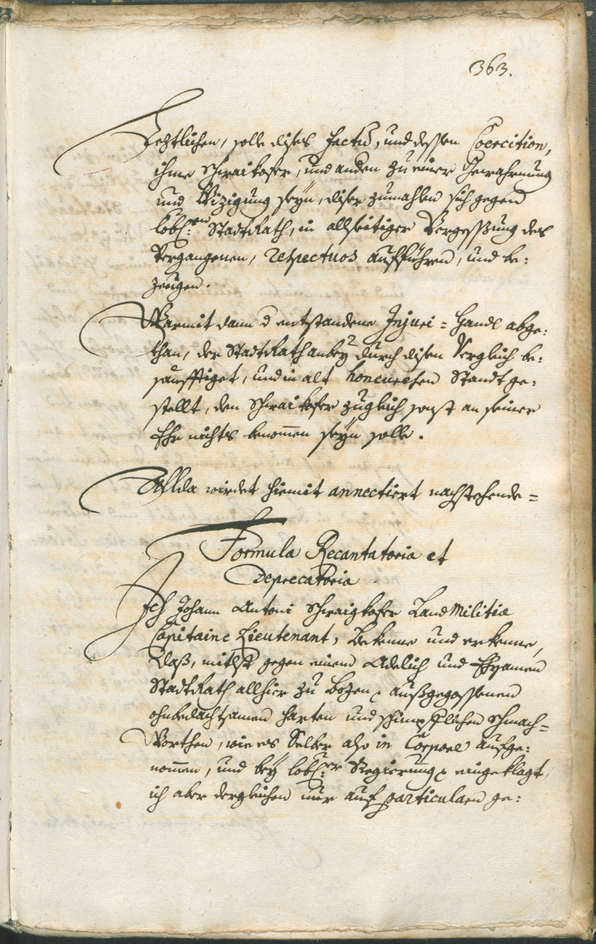 363.
Letztlichen, solle dises factum, und dessen Coercition,
ihme Schwaikofer, und anderen zu einer Gewahrnung
und Wizigung seyn, diser zumahlen sich gegen
löbl: StadtRath, in allseitiger Vergessung des
Vergangenen, respectuos aufführen, und be:
zeugen.
Warmit dann d entstandene Injuri = Handl abge:
than, der StadtRath anbey durch disen Verglich be:
sänfftiget, und in alt honorirten Standt ge:
stellt, dem Schwaikofer zugleich sonst an seiner
Ehr nichts benommen seyn solle.
Allda wirdet hiemit annectiert nachstehende =
Formula Recantatoria et
Deprecatoria
Ich Johann Antoni Schwaighofer LandMilitiæ
Capitaine Lieutenant, Bekenne und erkenne,
Daß, mithßt gegen einem Adelich und Ehrsamen
StadtRath allhier zu Bozen, außgegossenen
ohnbedachtsamen harten und schimpflichen Schmach=
Worthen, wie es Selber also in Corpore aufge:
nommen, und bey löbl: Regierung eingeklagt,
ich aber dergleichen nur auf particularn ge: